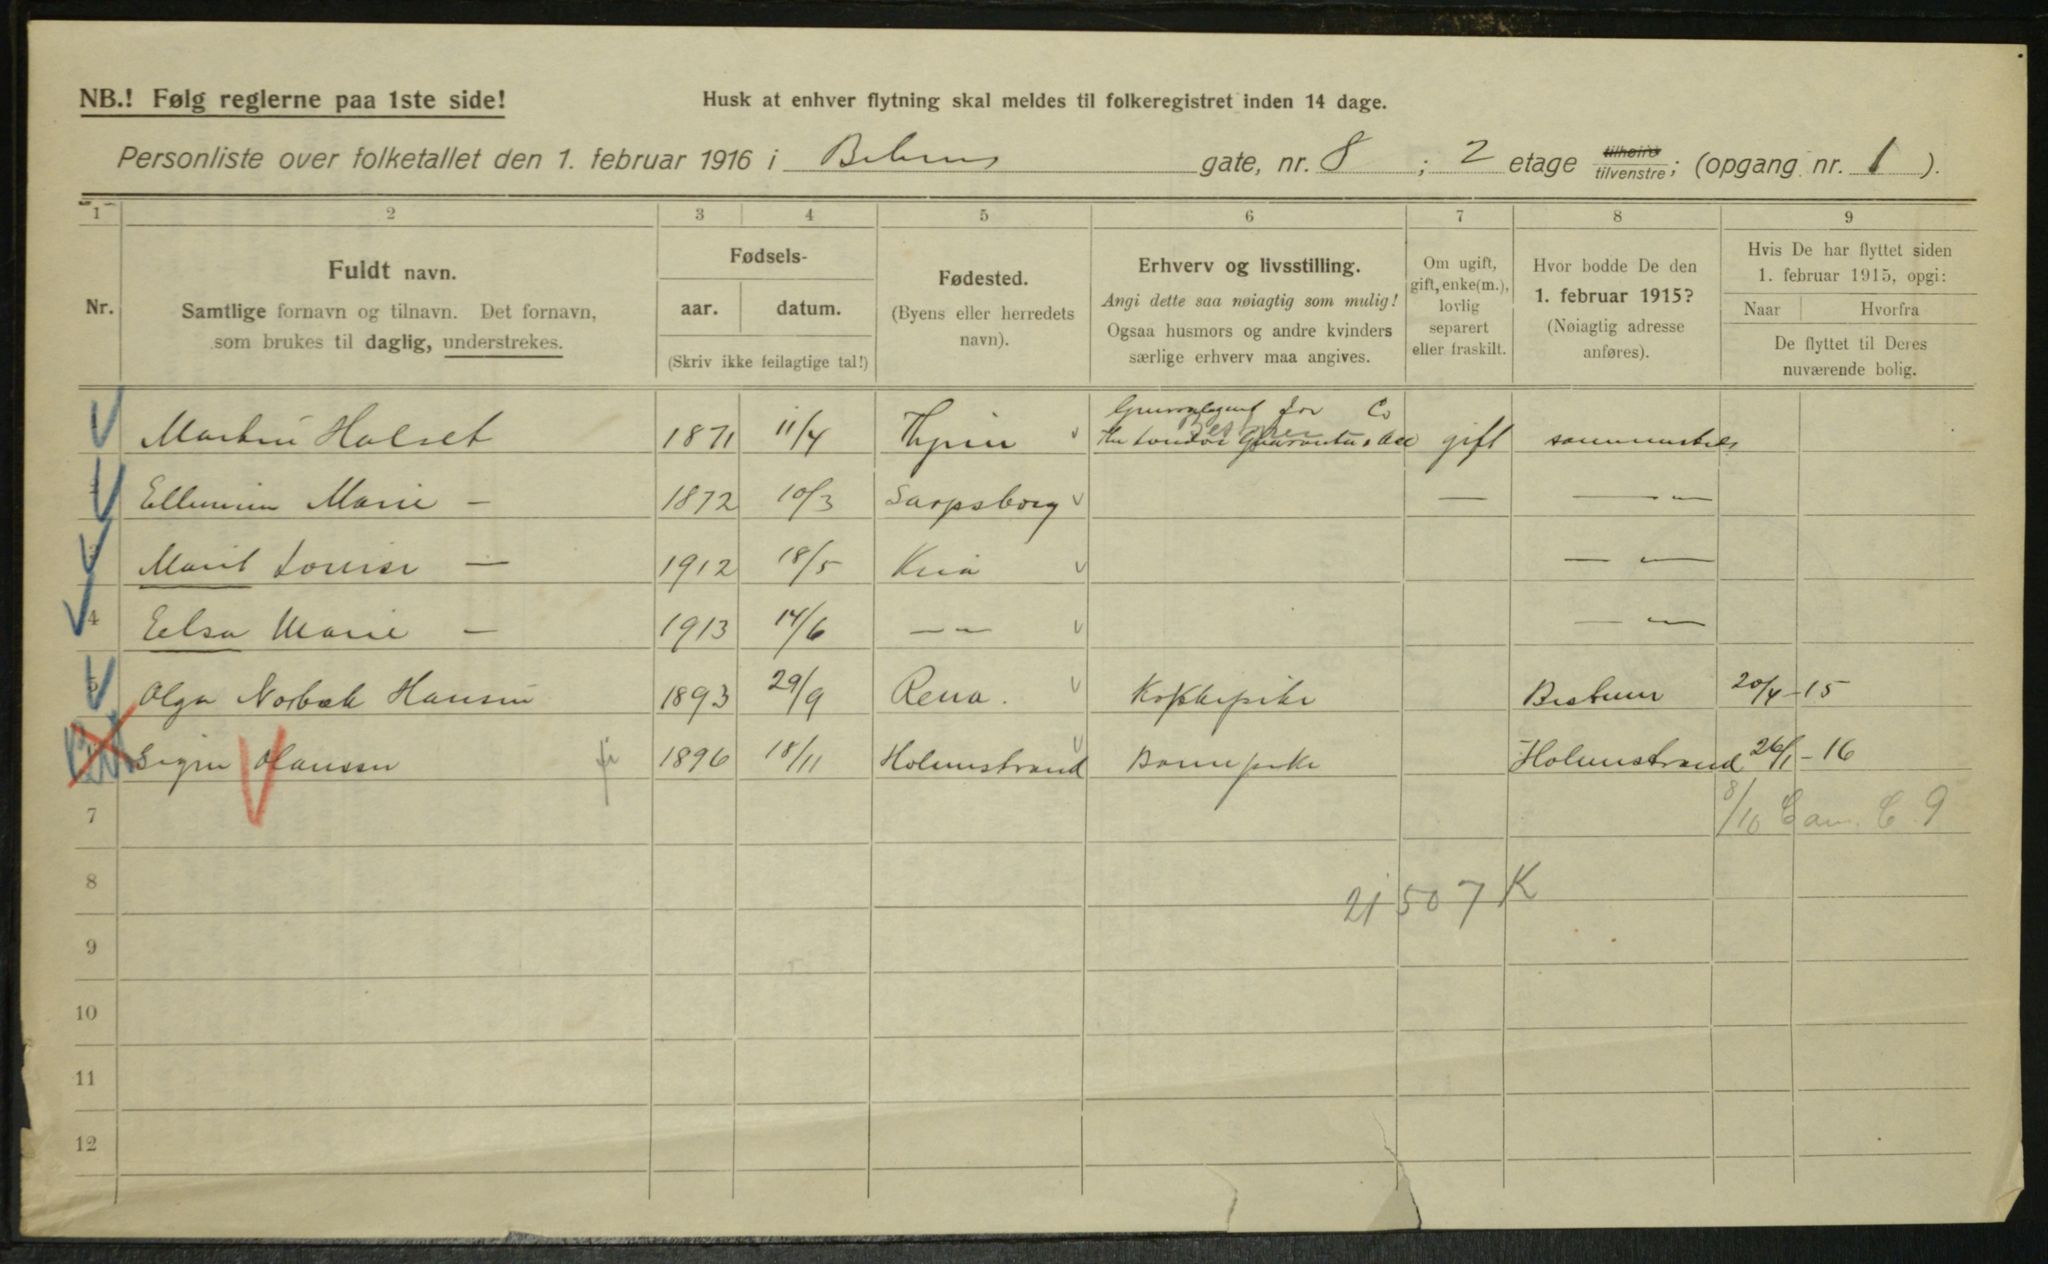 NB.! Følg reglerne paa 1ste side!
Husk at enhver flytning skal meldes til folkeregistret inden 14 dage.
Personliste over folketallet den 1. februar 1916 i gate, nr. 8 ; 2 etage tilhøire tilvenstre; (opgang nr. 1 ).
1 2 3 4 5 6 7 8 9
Nr.
Fuldt navn.
Samtlige fornavn og tilnavn. Det fornavn,
som brukes til daglig, understrekes.
Fødsels-
aar. datum.
(Skriv ikke feilagtige tal!)
Fødested.
(Byens eller herredets
navn).
Erhverv og livsstilling.
Angi dette saa nøiagtig som mulig!
Ogsaa husmors og andre kvinders
særlige erhverv maa angives.
Om ugift,
gift, enke(m.),
lovlig
separert
eller fraskilt.
Hvor bodde De den
1. februar 1915?
(Nøiagtig adresse
anføres).
Hvis De har flyttet siden
1. februar 1915, opgi:
Naar Hvorfra
De flyttet til Deres
nuværende bolig.
for Co
Martin Halset 1871 11/4 gift
Marie — 1872 10/3 Sarpsborg — — —
Marit Louise — 1912 18/5 Kria — —
4 Eelsa Marie — 1913 14/6 — — — —
5 Olga Norbæk Hansen 1893 29/9 Rena. Kokkepike Bestum 20/4-15
Hanssen 1896 18/11 Holmestrand Barnepike Holmestrand 26/1-16
7 8/10 C. 9
8 21507 K
9
10
11
12